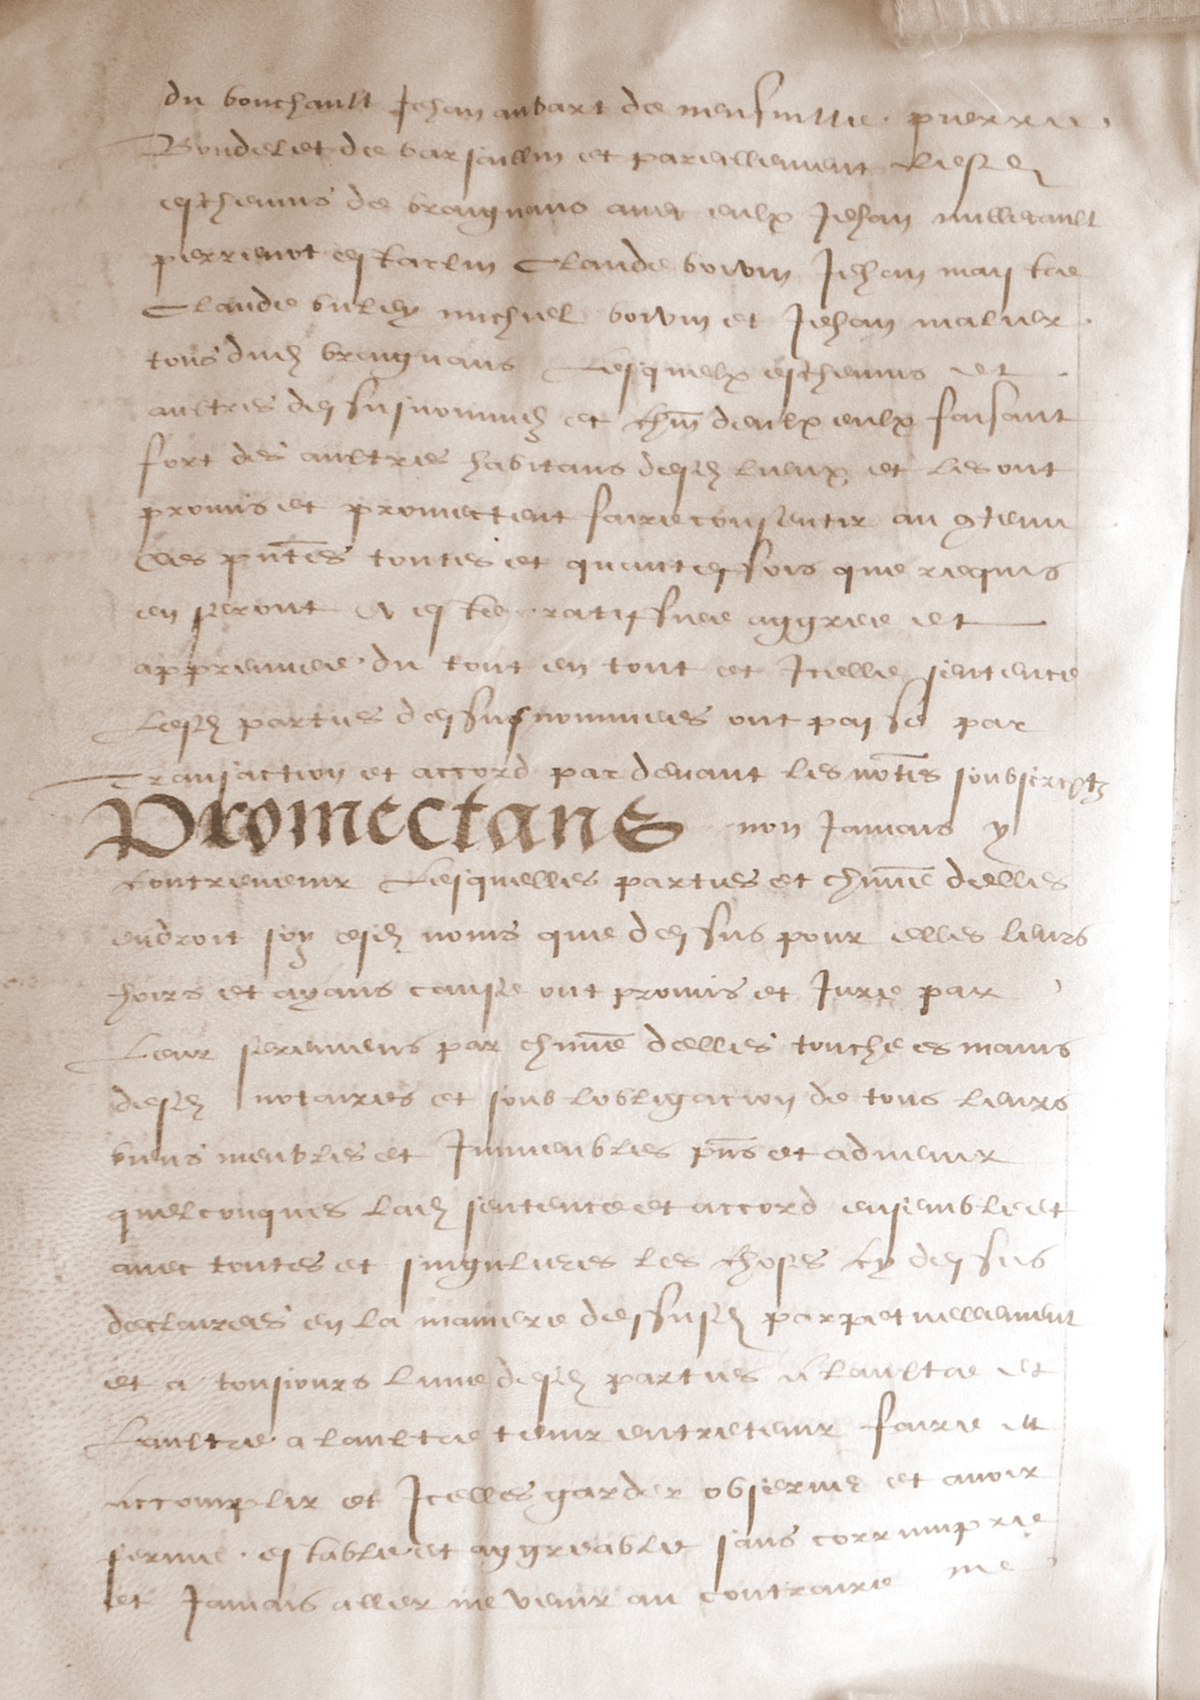 du bouchault Jehan aubart de neufville pierre
Bondelet de varsaillin et pareillement lesd
eschevins de braignans avec eulx Jehan millerault
pierrenot estaclin Claude boivin Jehan maistre
Claude buley michiel boivin et Jehan malier
tous dud braignans Lesquelx eschevins et
aultres dessusnommez et chun deulx eulx faisant
fort des aultres habitans desd lieux et lesont
promis et promectent faire consentir au gtenu
des pntes toutes et quanteffois que requis
en seront A este ratiffiee aggree et
appreuvee du tout en tout et Icelle sentence
Lesd parties dessusnommees ont passe par
Transaction et accord par devant les notes soubscriptz
Promectans non Jamais y
contrevenir Lesquelles parties et chune delles
endroit soy esd noms que dessus pour elles leurs
hoirs et ayans cause ont promis et Jure par
Leur seremens par chune delles touche es mains
desd notaires et soub lobligacion de tous leurs
biens meubles et Immeubles pns et advenir
quelconques lad sentence et accord ensemble et
avec toutes et singulieres les choses cy dessus
declairees en la maniere dessusd parpetuellement
et a tousiours lune desd parties a laultre et
Laultre a laultre tenir entretenir faire et
accomplir et Icelles garder observer et avoir
ferme estable et aggreable sans corrumpre
et Jamais aller ne venir au contraire ne